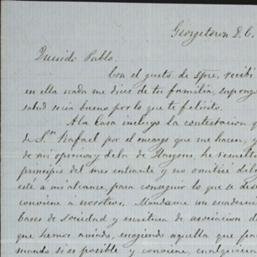 Georgetown D.C.
Querido Pablo
Con el gusto de spre. recibi
en ella nada me dices de tu familia, supongo
salud seria bueno por lo que te felicito.
A la Casa incluyo la contestacion
de Sn Rafael por el encargo que me hacen, y
de mi opinion y debo de he remitido
principio del mes entrante y no omitiré
esté a mi alcance para conseguir lo que se
conviene a nosotros. Mandame un cuaderno
bases de sociedad y escritura de asociacion
que hemos escogiendo aquella que
mando si es posible y conviene, cualquiera